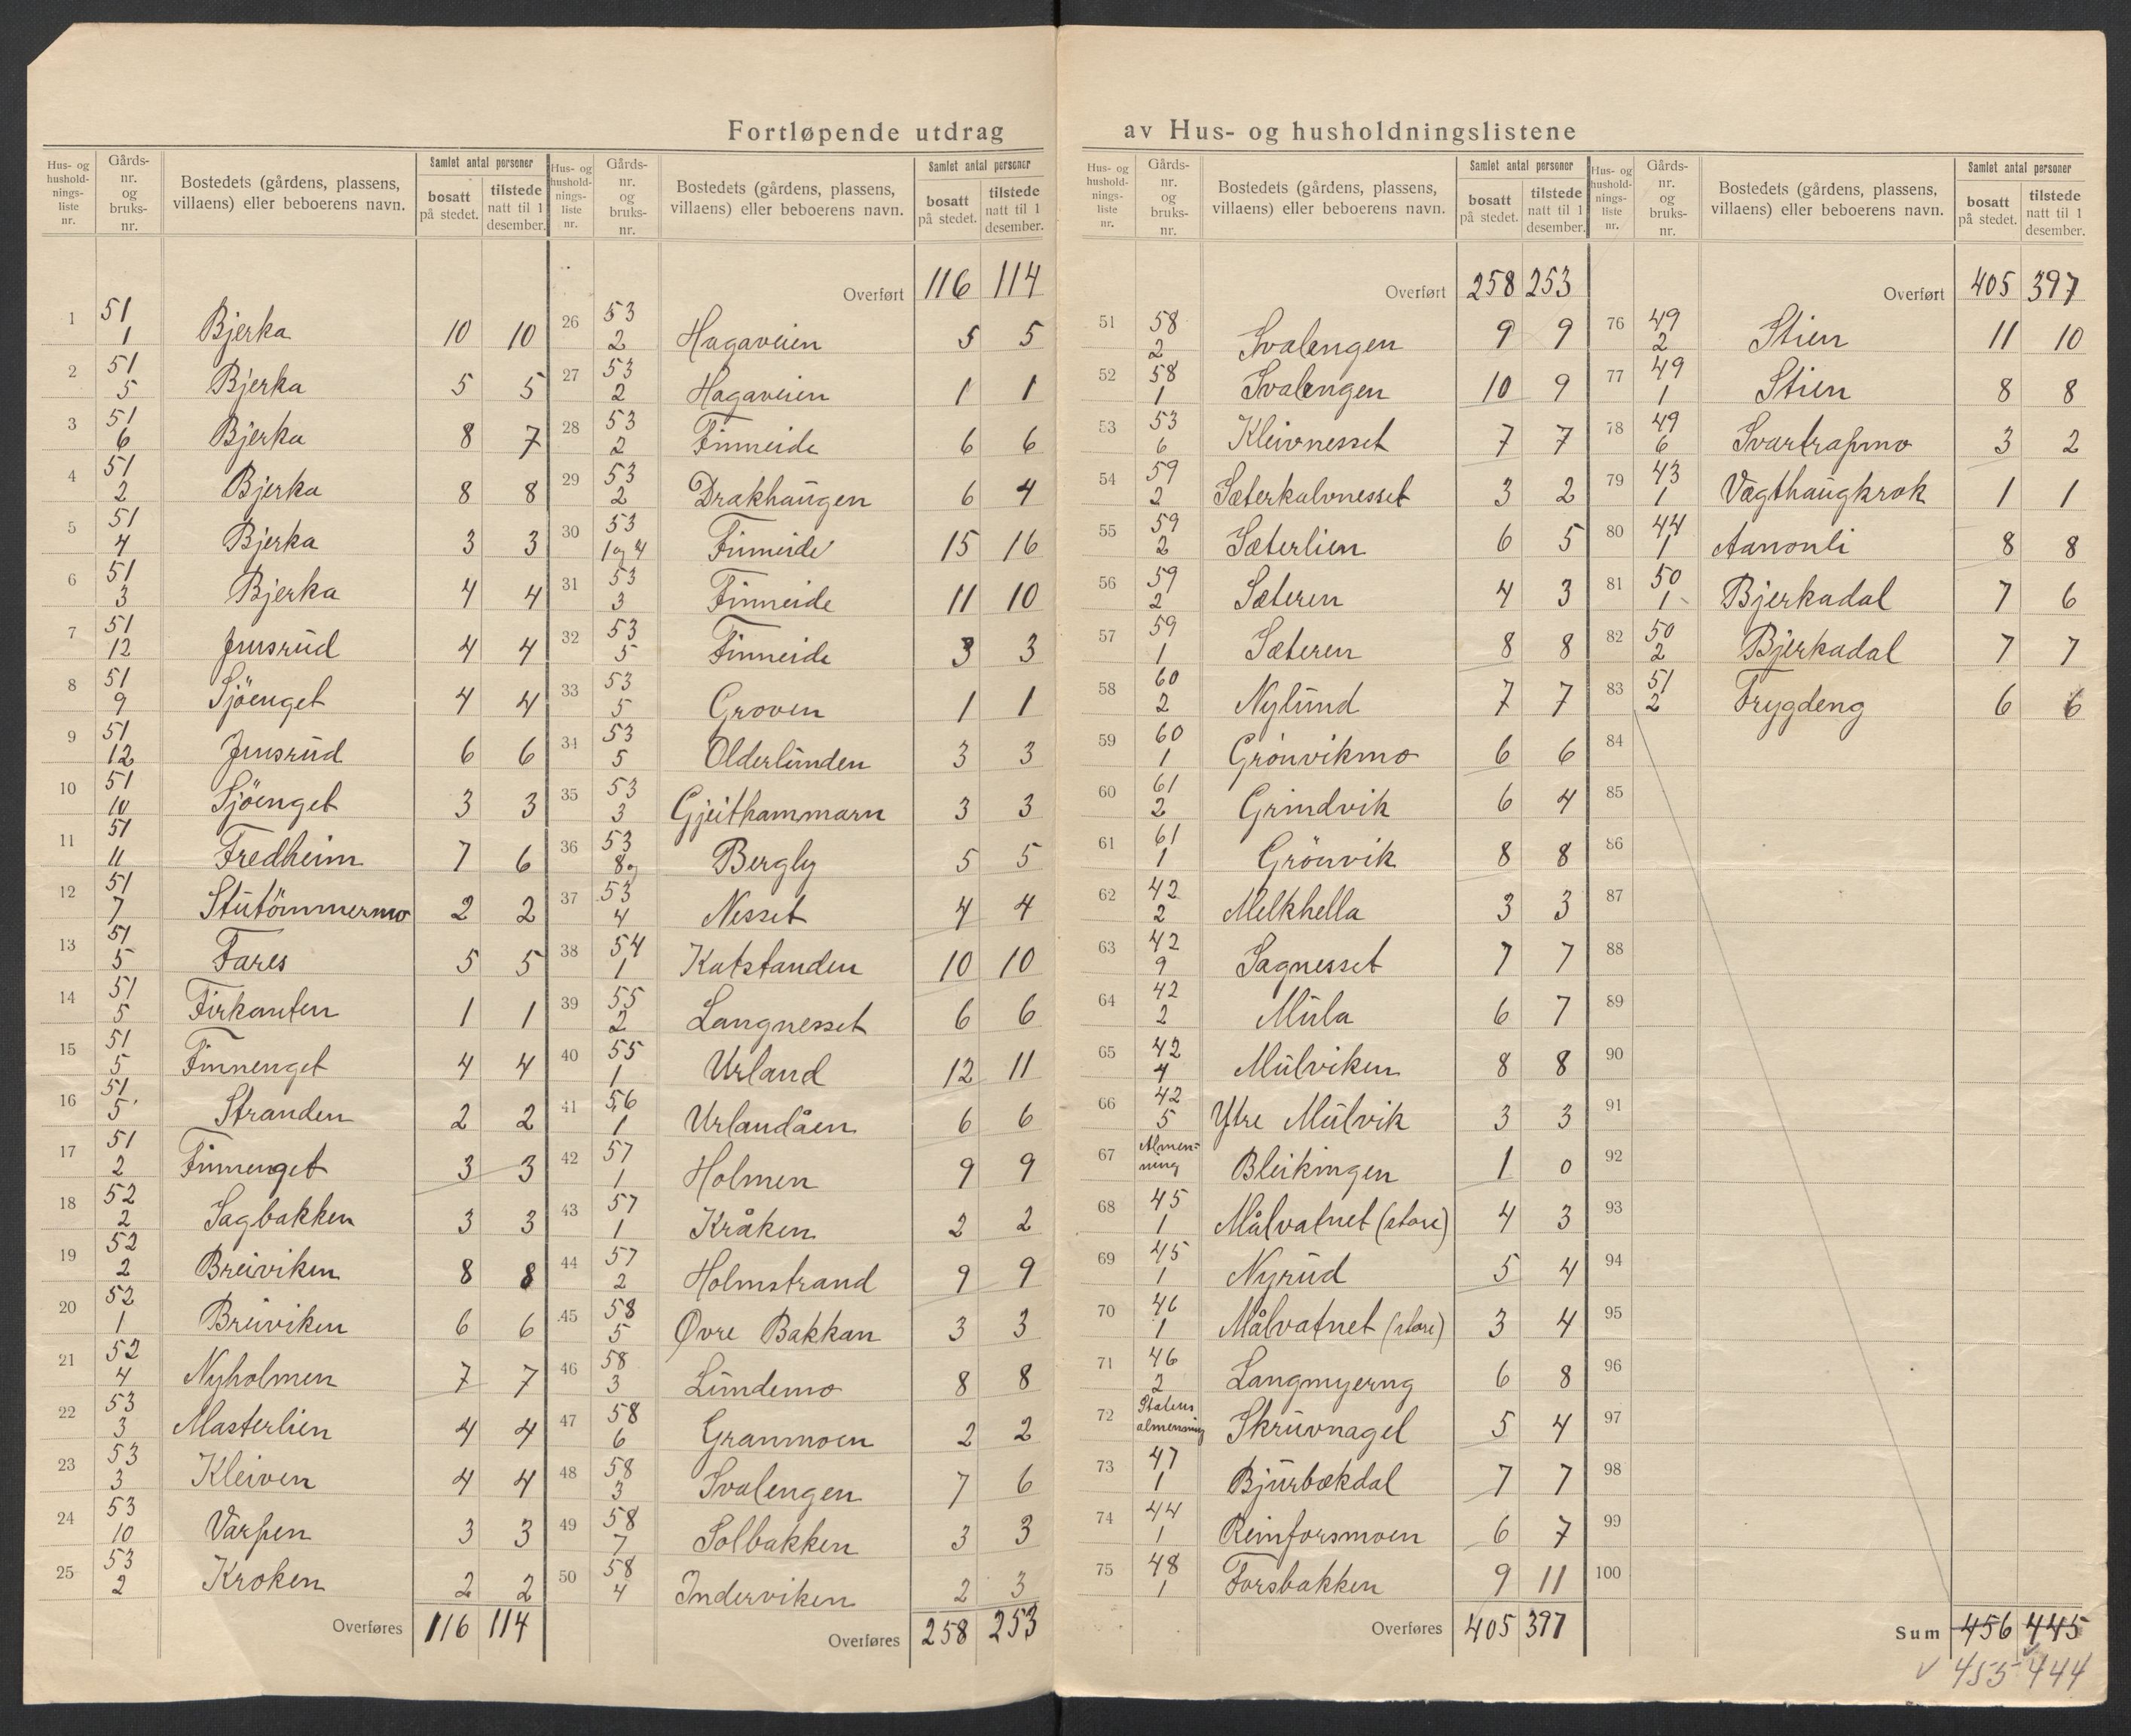 Fortløpende utdrag av Hus- og husholdningslistene
Hus- og hushold-nings-liste nr. | Gårds-nr. og bruks-nr. | Bostedets (gårdens, plassens, villaens) eller beboerens navn. | Samlet antal personer bosatt på stedet. | tilstede natt til 1 desember.
1 51 1 Bjerka 10 10
2 51 5 Bjerka 5 5
3 51 6 Bjerka 8 7
4 51 2 Bjerka 8 8
5 51 4 Bjerka 3 3
6 51 3 Bjerka 4 4
7 51 12 Jensrud 4 4
8 51 9 Sjöenget 4 4
9 51 12 Jensrud 6 6
10 51 10 Sjöenget 3 3
11 51 11 Fredheim 7 6
12 51 7 Stutömmermo 2 2
13 51 5 Fares 5 5
14 51 5 Firkanten 1 1
15 51 5 Finnenget 4 4
16 51 5 Stranden 2 2
17 51 2 Finnenget 3 3
18 52 2 Sagbakken 3 3
19 52 2 Breiviken 8 8
20 52 1 Breiviken 6 6
21 52 4 Nyholmen 7 7
22 53 3 Masterlien 4 4
23 53 3 Kleiven 4 4
24 53 10 Varpen 3 3
25 53 2 Kroken 2 2
Overføres 116 114
Hus- og hushold-nings-liste nr. | Gårds-nr. og bruks-nr. | Bostedets (gårdens, plassens, villaens) eller beboerens navn. | Samlet antal personer bosatt på stedet. | tilstede natt til 1 desember.
Overført 116 114
26 53 2 Hagaveien 5 5
27 53 2 Hagaveien 1 1
28 53 2 Finneide 6 6
29 53 2 Drakhaugen 6 4
30 53 1 og 4 Finneide 15 16
31 53 3 Finneide 11 10
32 53 5 Finneide 3 3
33 53 5 Groven 1 1
34 53 5 Olderlunden 3 3
35 53 3 Gjeithammarn 3 3
36 53 8 Bergly 5 5
37 53 4 Nesset 4 4
38 54 1 Katstanden 10 10
39 55 2 Langnesset 6 6
40 55 1 Urland 12 11
41 56 1 Urlandåen 6 6
42 57 1 Holmen 9 9
43 57 1 Kråken 2 2
44 57 2 Holmstrand 9 9
45 58 5 Øvre Bakkan 3 3
46 58 3 Lundemo 8 8
47 58 6 Granmoen 2 2
48 58 3 Svalengen 7 6
49 58 7 Solbakken 3 3
50 58 4 Inderviken 2 3
Overføres 258 253
Hus- og hushold-nings-liste nr. | Gårds-nr. og bruks-nr. | Bostedets (gårdens, plassens, villaens) eller beboerens navn. | Samlet antal personer bosatt på stedet. | tilstede natt til 1 desember.
Overført 258 253
51 58 2 Svalengen 9 9
52 58 1 Svalengen 10 9
53 53 6 Kleivnesset 7 7
54 59 2 Sæterkalvnesset 3 2
55 59 2 Sæterlien 6 5
56 59 2 Sæteren 4 3
57 59 1 Sæteren 8 8
58 60 2 Nylund 7 7
59 60 1 Grönvikmo 6 6
60 61 2 Grindvik 6 4
61 61 1 Grönvik 8 8
62 42 2 Melkhella 3 3
63 42 9 Sagnesset 7 7
64 42 2 Mula 6 7
65 42 4 Mulviken 8 8
66 42 5 Ytre Mulvik 3 3
67 Almen-ning Bleikingen 1 0
68 45 1 Målvatnet (store) 4 3
69 45 1 Nyrud 5 4
70 46 1 Målvatnet (store) 3 4
71 46 2 Langmyerng 6 8
72 Statens almenning Skruvnagel 5 4
73 47 1 Bjurbækdal 7 7
74 44 1 Reinforsmoen 6 7
75 48 1 Forsbakken 9 11
Overføres 405 397
Hus- og hushold-nings-liste nr. | Gårds-nr. og bruks-nr. | Bostedets (gårdens, plassens, villaens) eller beboerens navn. | Samlet antal personer bosatt på stedet. | tilstede natt til 1 desember.
Overført 405 397
76 49 2 Stien 11 10
77 49 1 Stien 8 8
78 49 6 Svartrapmo 3 2
79 43 1 Vagthaugkrok 1 1
80 44 1 Aanonli 8 8
81 50 1 Bjerkadal 7 6
82 50 2 Bjerkadal 7 7
83 51 2 Trygdeng 6 6
84
85
86
87
88
89
90
91
92
93
94
95
96
97
98
99
100
Sum 456 445
455 444